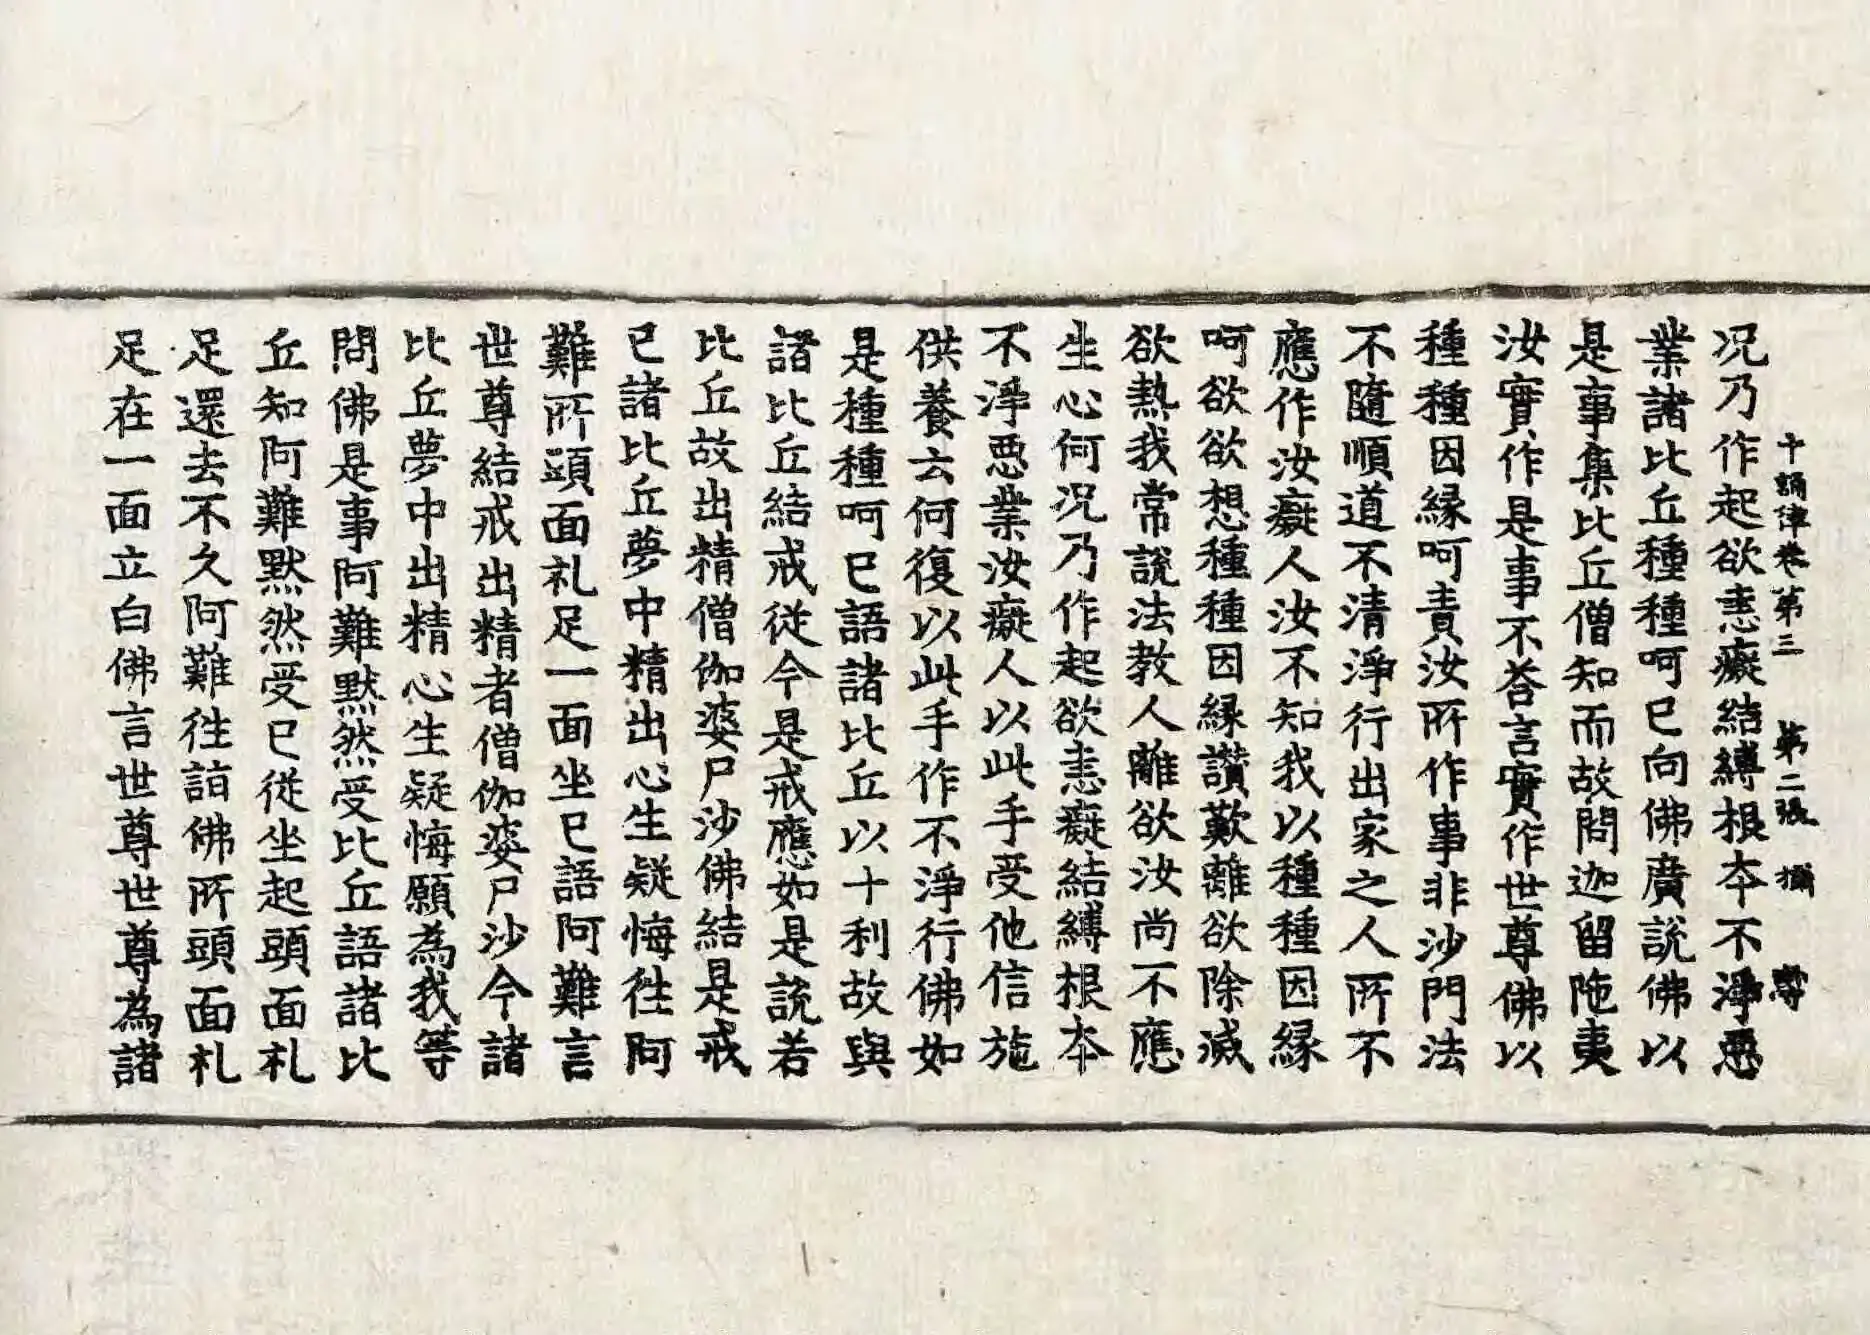 十誦律卷第三 第二張 攝
况乃作起欲恚癡結縛根本不淨惡
業諸比丘種種呵已向佛廣說佛以
是事集比丘僧知而故問迦留陁夷
汝實作是事不荅言實作世尊佛以
種種因縁呵責汝所作事非沙門法
不隨順道不清淨行出家之人所不
應作汝癡人汝不知我以種種因縁
呵欲欲想種種因縁讃歎離欲除滅
欲熱我常說法教人離欲汝尚不應
生心何况乃作起欲恚癡結縛根本
不淨惡業汝癡人以此手受他信施
供養云何復以此手作不淨行佛如
是種種呵已語諸比丘以十利故與
諸比丘結戒從今是戒應如是說若
比丘故出精僧伽婆尸沙佛結是戒
已諸比丘夢中精出心生疑悔往阿
難所頭面礼足一面坐已語阿難言
世尊結戒出精者僧伽婆尸沙今諸
比丘夢中出精心生疑悔願為我等
問佛是事阿難默然受比丘語諸比
丘知阿難默然受已從坐起頭面札
足還去不久阿難往詣佛所頭面札
足在一面立白佛言世尊世尊為諸